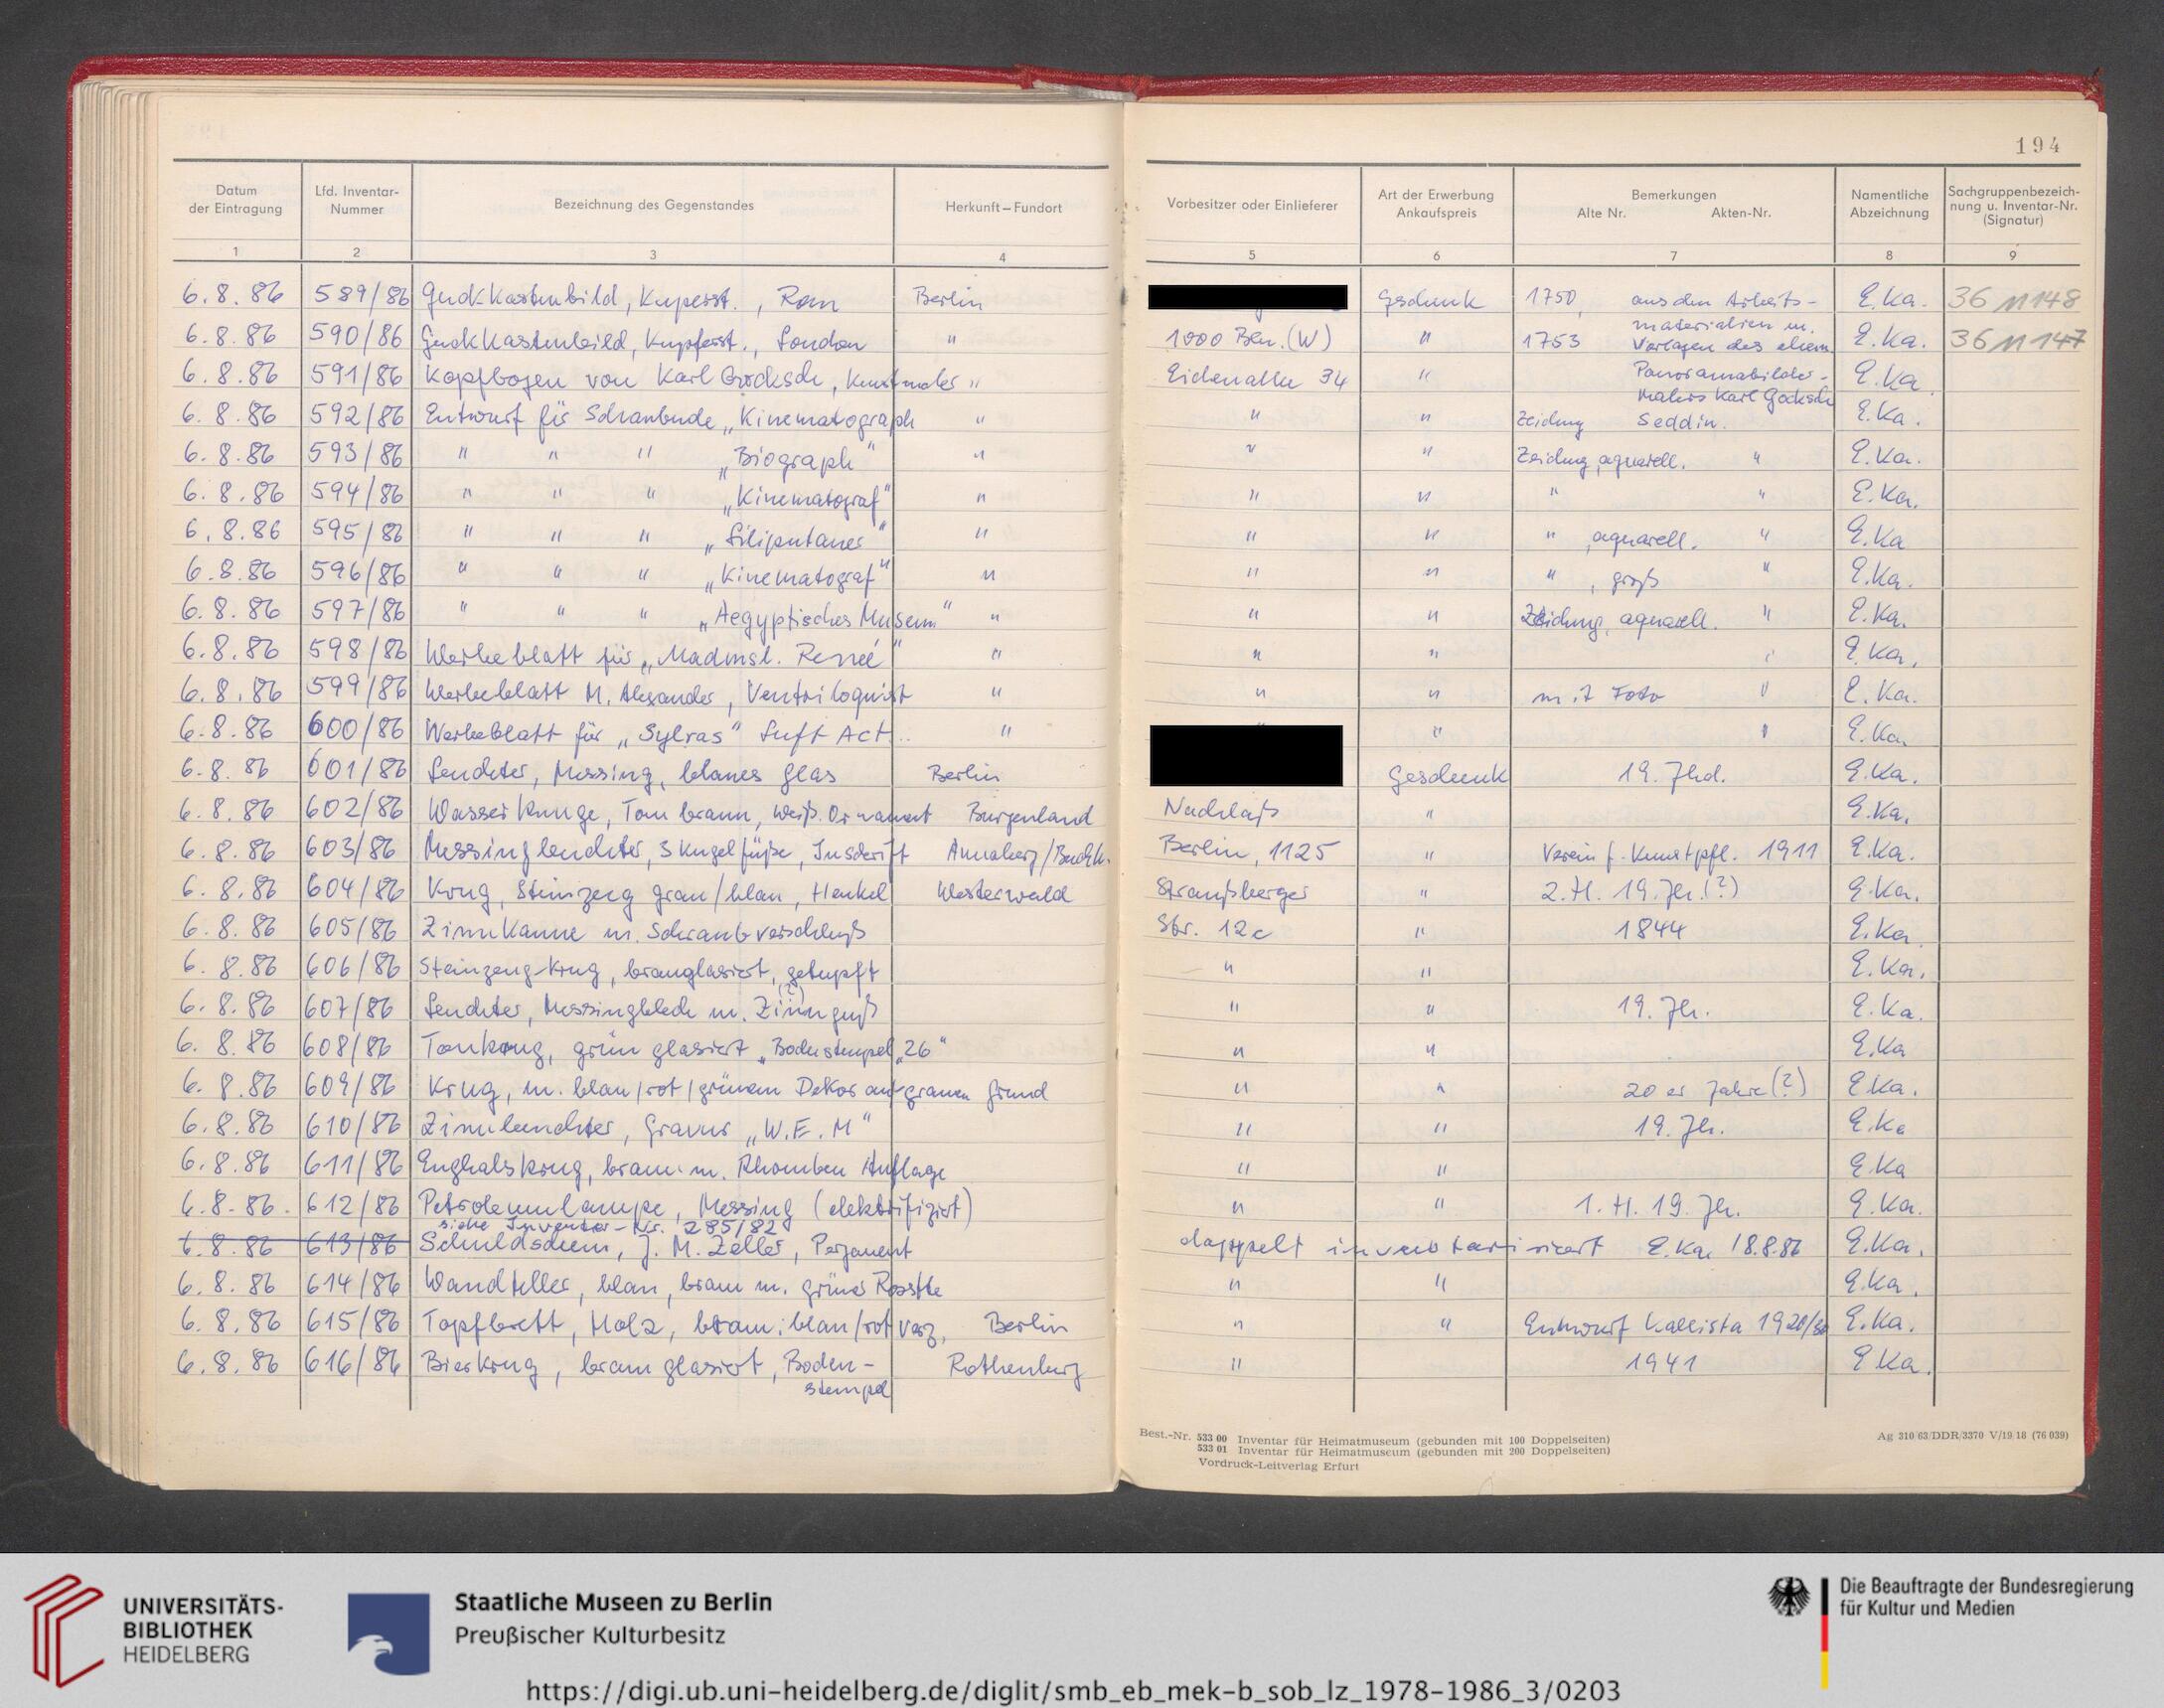 194
Datum der Eintragung | Lfd. Inventar-Nummer | Bezeichnung des Gegenstandes | Herkunft – Fundort | Vorbesitzer oder Einlieferer | Art der Erwerbung Ankaufspreis | Bemerkungen Alte Nr. Akten-Nr. | Namentliche Abzeichnung | Sachgruppenbezeich-nung u. Inventar-Nr. (Signatur)
1 2 3 4 5 6 7 8 9
6.8.86 589/86 Guckkastenbild, Kupferst., Rom Berlin Geschenk 1750, aus den Arbeits- E.Ka. 36 M 148
materialien u.
6.8.86 590/86 Guckkastenbild, Kupferst., London " 1000 Bln. (W) " 1753 Vorlagen des ehem. E.Ka. 36 M 147
6.8.86 591/86 Kopfbogen von Karl Gocksch, Kunstmaler " Eichenallee 34 " Panoramabilder- E.Ka.
Malers Karl Gocksch
6.8.86 592/86 Entwurf für Schaubude „Kinematograph " " " Zeichng Seddin. E.Ka.
6.8.86 593/86 " " " „Biograph" " " " Zeichng, aquarell. " E.Ka.
6.8.86 594/86 " " " „Kinematograf" " " " " " E.Ka.
6.8.86 595/86 " " " „Liliputaner" " " " " , aquarell. " E.Ka
6.8.86 596/86 " " " „Kinematograf" " " " " , groß " E.Ka.
6.8.86 597/86 " " " „Aegyptisches Museum" " " " Zeichung, aquarell. " E.Ka.
6.8.86 598/86 Werbeblatt für „Madmsl. Reneé" " " " " E.Ka.
6.8.86 599/86 Werbeblatt M. Alexander, Ventriloquist " " " mit Foto " E.Ka.
6.8.86 600/86 Werbeblatt für „Sylras" Luft Act. " " " E.Ka.
6.8.86 601/86 Leuchter, Messing, blaues Glas Berlin Geschenk 19. Jhd. E.Ka.
6.8.86 602/86 Wasserkruge, Ton braun, weiß. Ornament Burgenland Nachlaß " E.Ka.
6.8.86 603/86 Messingleuchter, 3 Kugelfüße, Inschrift Annaberg/Buchh. Berlin, 1125 " Verein f. Kunstpfl. 1911 E.Ka.
6.8.86 604/86 Krug, Steinzeug grau/blau, Henkel Westerwald Straußberger " 2.H. 19.Jh.(?) E.Ka.
6.8.86 605/86 Zinnkanne m. Schraubverschluß Str. 12c " 1844 E.Ka.
6.8.86 606/86 Steinzeug-Krug, braunglasiert, getupft " " E.Ka.
6.8.86 607/86 Leuchter, Messingblech m. Zinnguß (?) " " 19. Jh. E.Ka.
6.8.86 608/86 Tonkrug, grün glasiert, Bodenstempel „26" " " E.Ka
6.8.86 609/86 Krug, m. blau/rot/grünem Dekor auf grauen Grund " " 20er Jahre(?) E.Ka.
6.8.86 610/86 Zinnleuchter, Gravur „W.E.M" " " 19. Jh. E.Ka
6.8.86 611/86 Enghalskrug, braun m. Rhomben Auflage " " E.Ka
6.8.86. 612/86 Petroleumlampe, Messing (elektrifiziert) " " 1. H. 19. Jh. E.Ka.
siehe Inventar-Nr. 285/82
6.8.86 613/86 Schuldschein, J. M. Zeller, Pergament doppelt inventarisiert E.Ka. 18.8.86 E.Ka.
6.8.86 614/86 Wandteller, blau, braun m. grüner Rosette " " E.Ka.
6.8.86 615/86 Topfbrett, Holz, braun; blau/rot verz. Berlin " " Entwurf Kallista 1920/30 E.Ka.
6.8.86 616/86 Bierkrug, braun glasiert, Boden- Rothenburg " 1941 E.Ka.
stempel
Best.-Nr. 533 00 Inventar für Heimatmuseum (gebunden mit 100 Doppelseiten)
533 01 Inventar für Heimatmuseum (gebunden mit 200 Doppelseiten)
Vordruck-Leitverlag Erfurt
Ag 310 63/DDR/3370 V/19 18 (76 039)
UNIVERSITÄTS-
BIBLIOTHEK
HEIDELBERG
Staatliche Museen zu Berlin
Preußischer Kulturbesitz
Die Beauftragte der Bundesregierung
für Kultur und Medien
https://digi.ub.uni-heidelberg.de/diglit/smb_eb_mek-b_sob_lz_1978-1986_3/0203